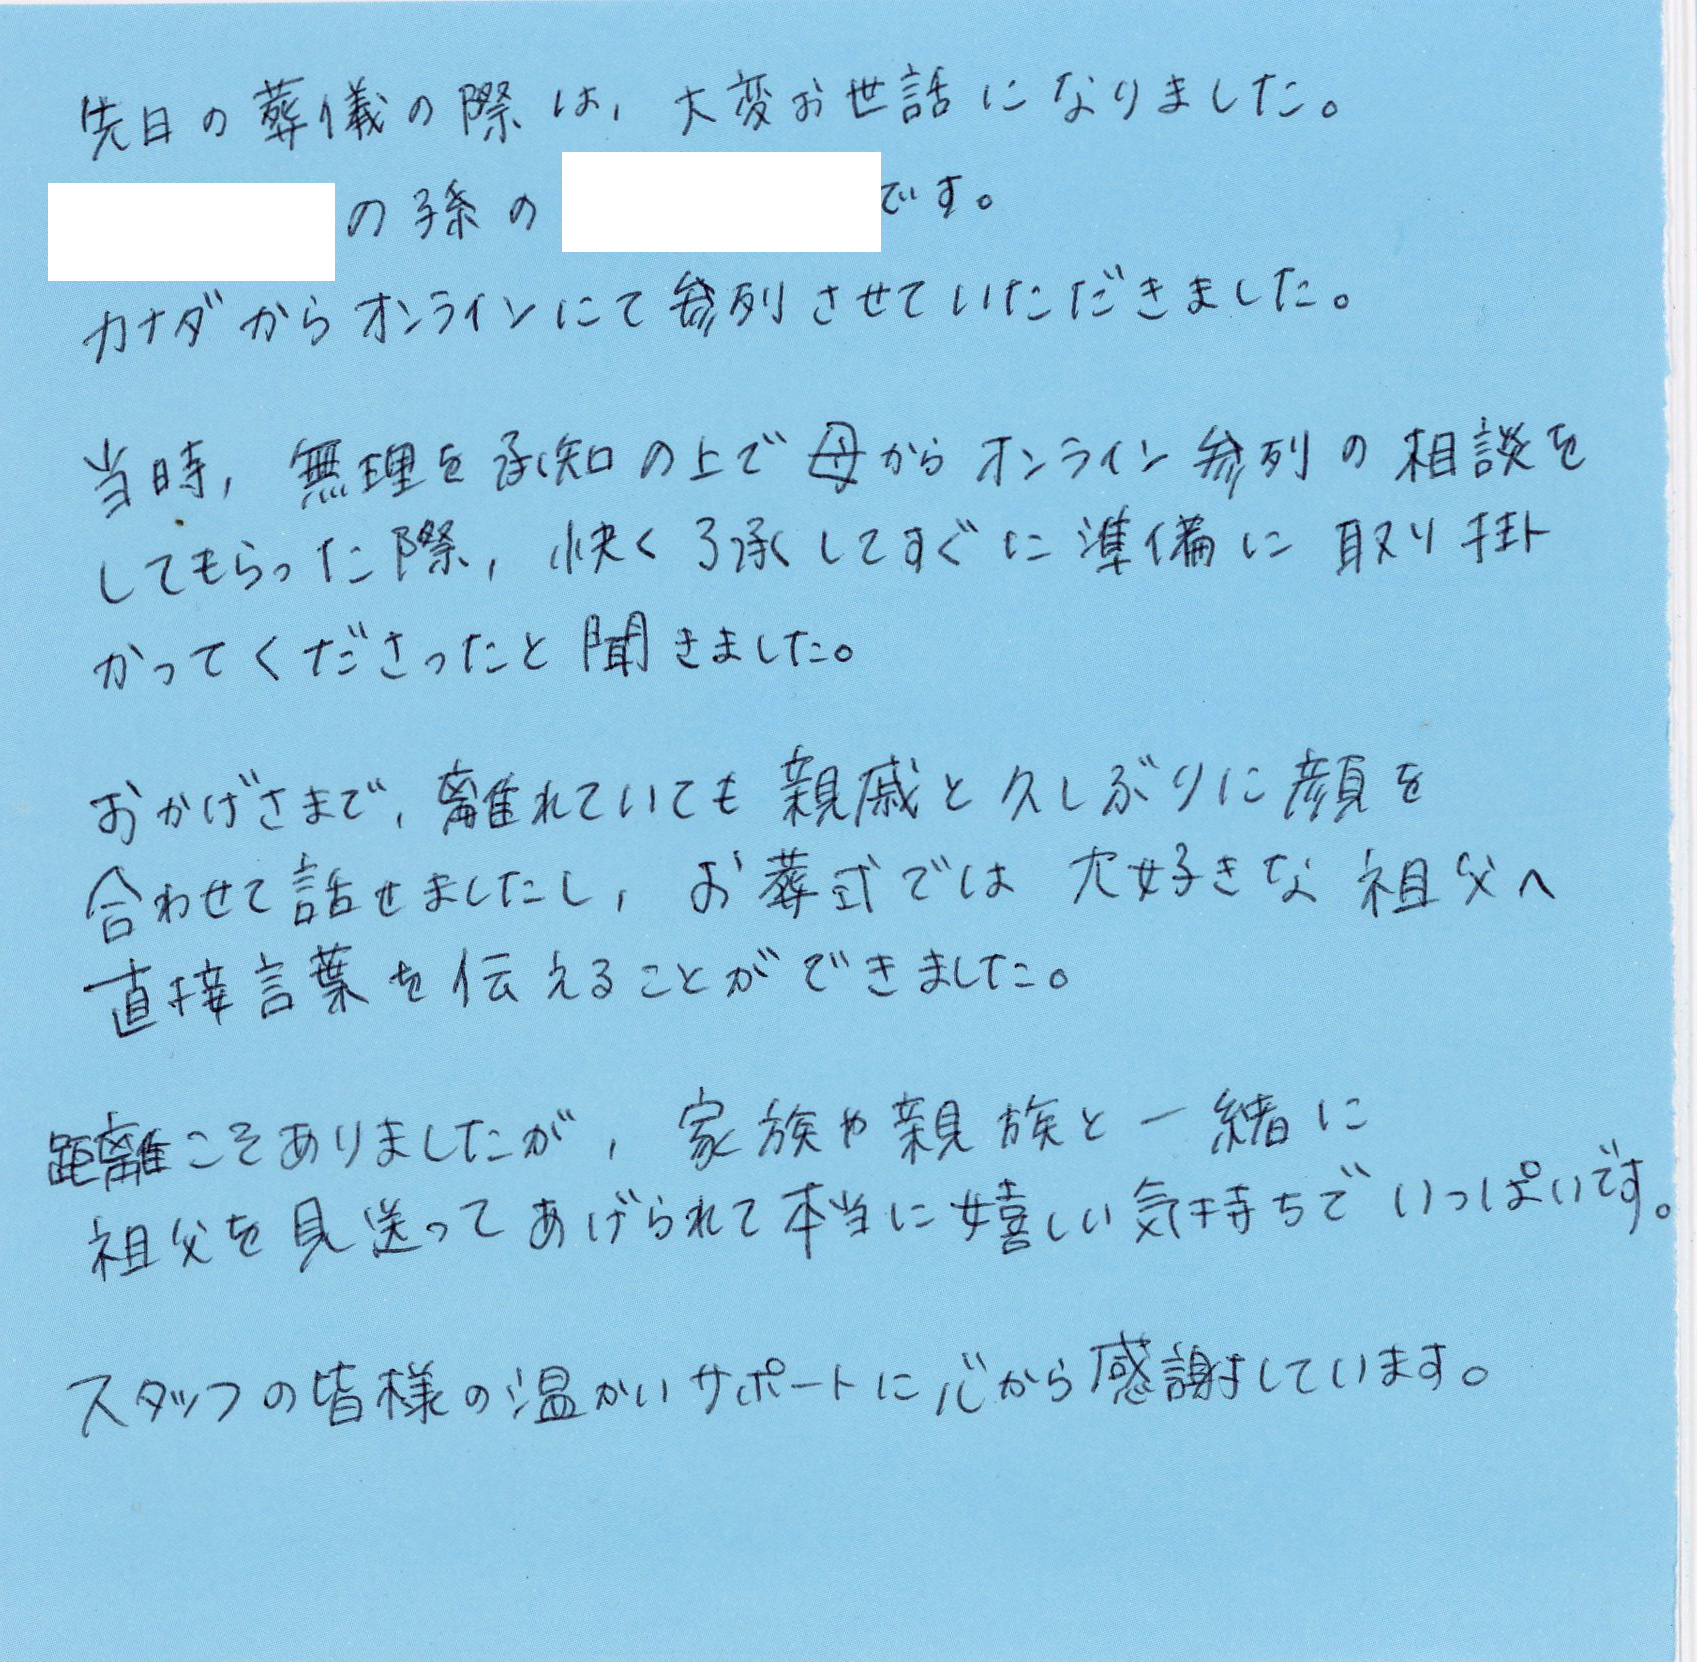 先日の葬儀の際は, 大変お世話になりました。
の孫の です。
カナダからオンラインにて参列させていただきました。
当時, 無理を承知の上で母からオンライン参列の相談を
してもらった際, 快く了承してすぐに準備に取り掛
かってくださったと聞きました。
おかげさまで, 離れていても親戚と久しぶりに顔を
合わせて話せましたし, お葬式では大好きな祖父へ
直接言葉を伝えることができました。
距離こそありましたが, 家族や親族と一緒に
祖父を見送ってあげられて本当に嬉しい気持ちでいっぱいです。
スタッフの皆様の温かいサポートに心から感謝しています。